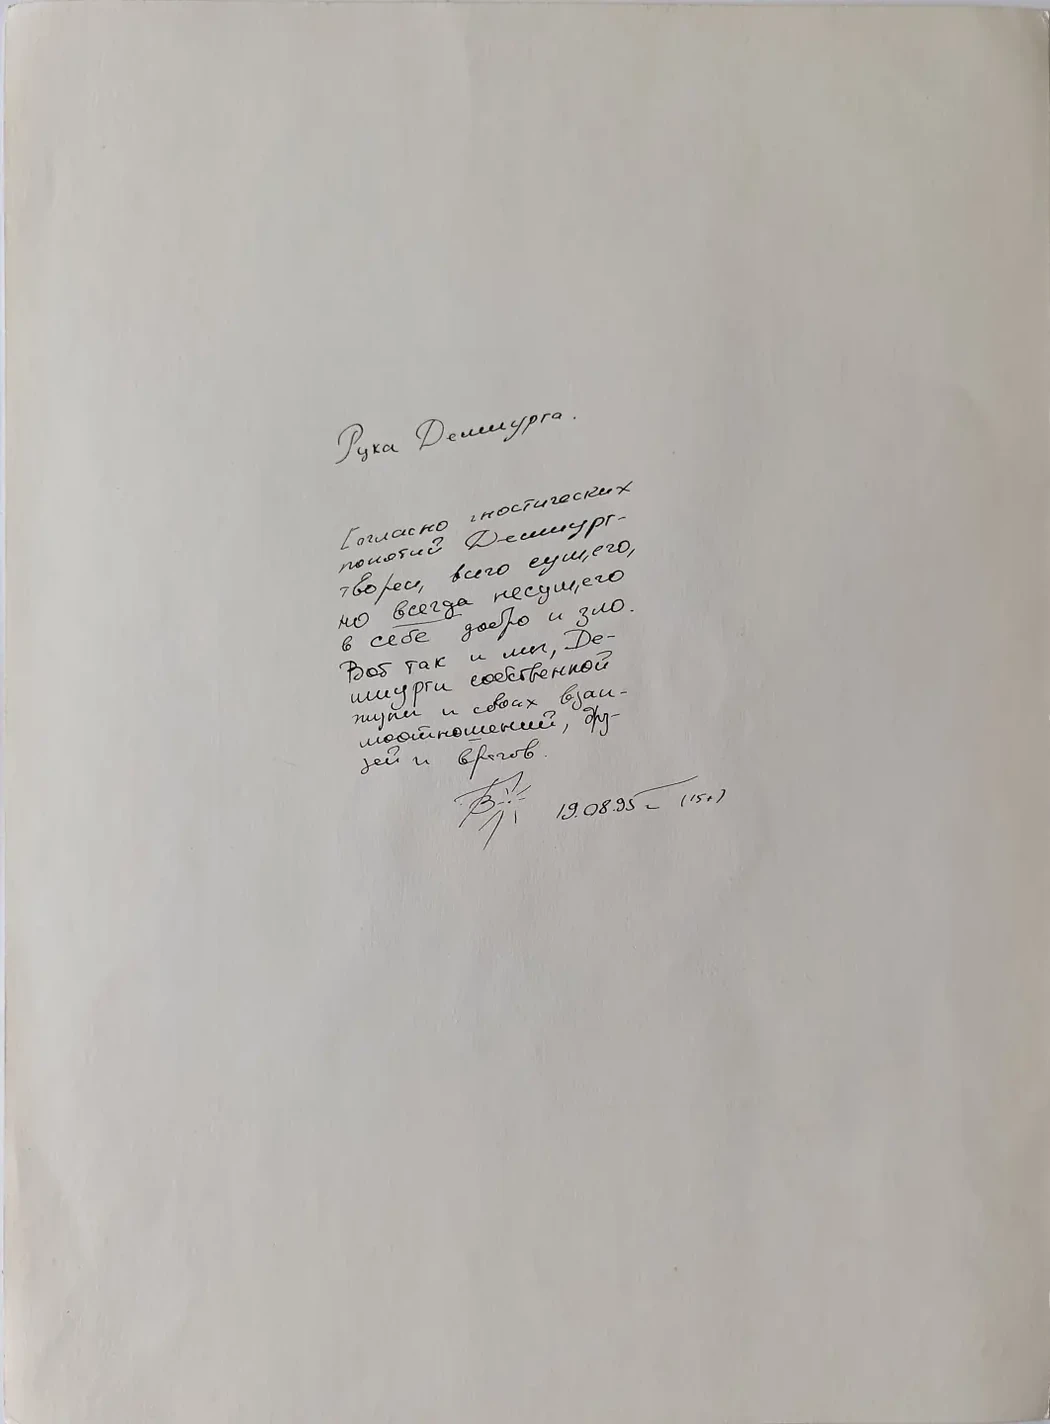 Рука Демиурга.
Согласно гностических
понятий Демиург-
творец всего сущего,
но всегда несущего
в себе добро и зло.
Вот так и мы, Де-
миурги собственной
и своих взаи-
моотношений, дру-
зей и врагов.
19.08.95